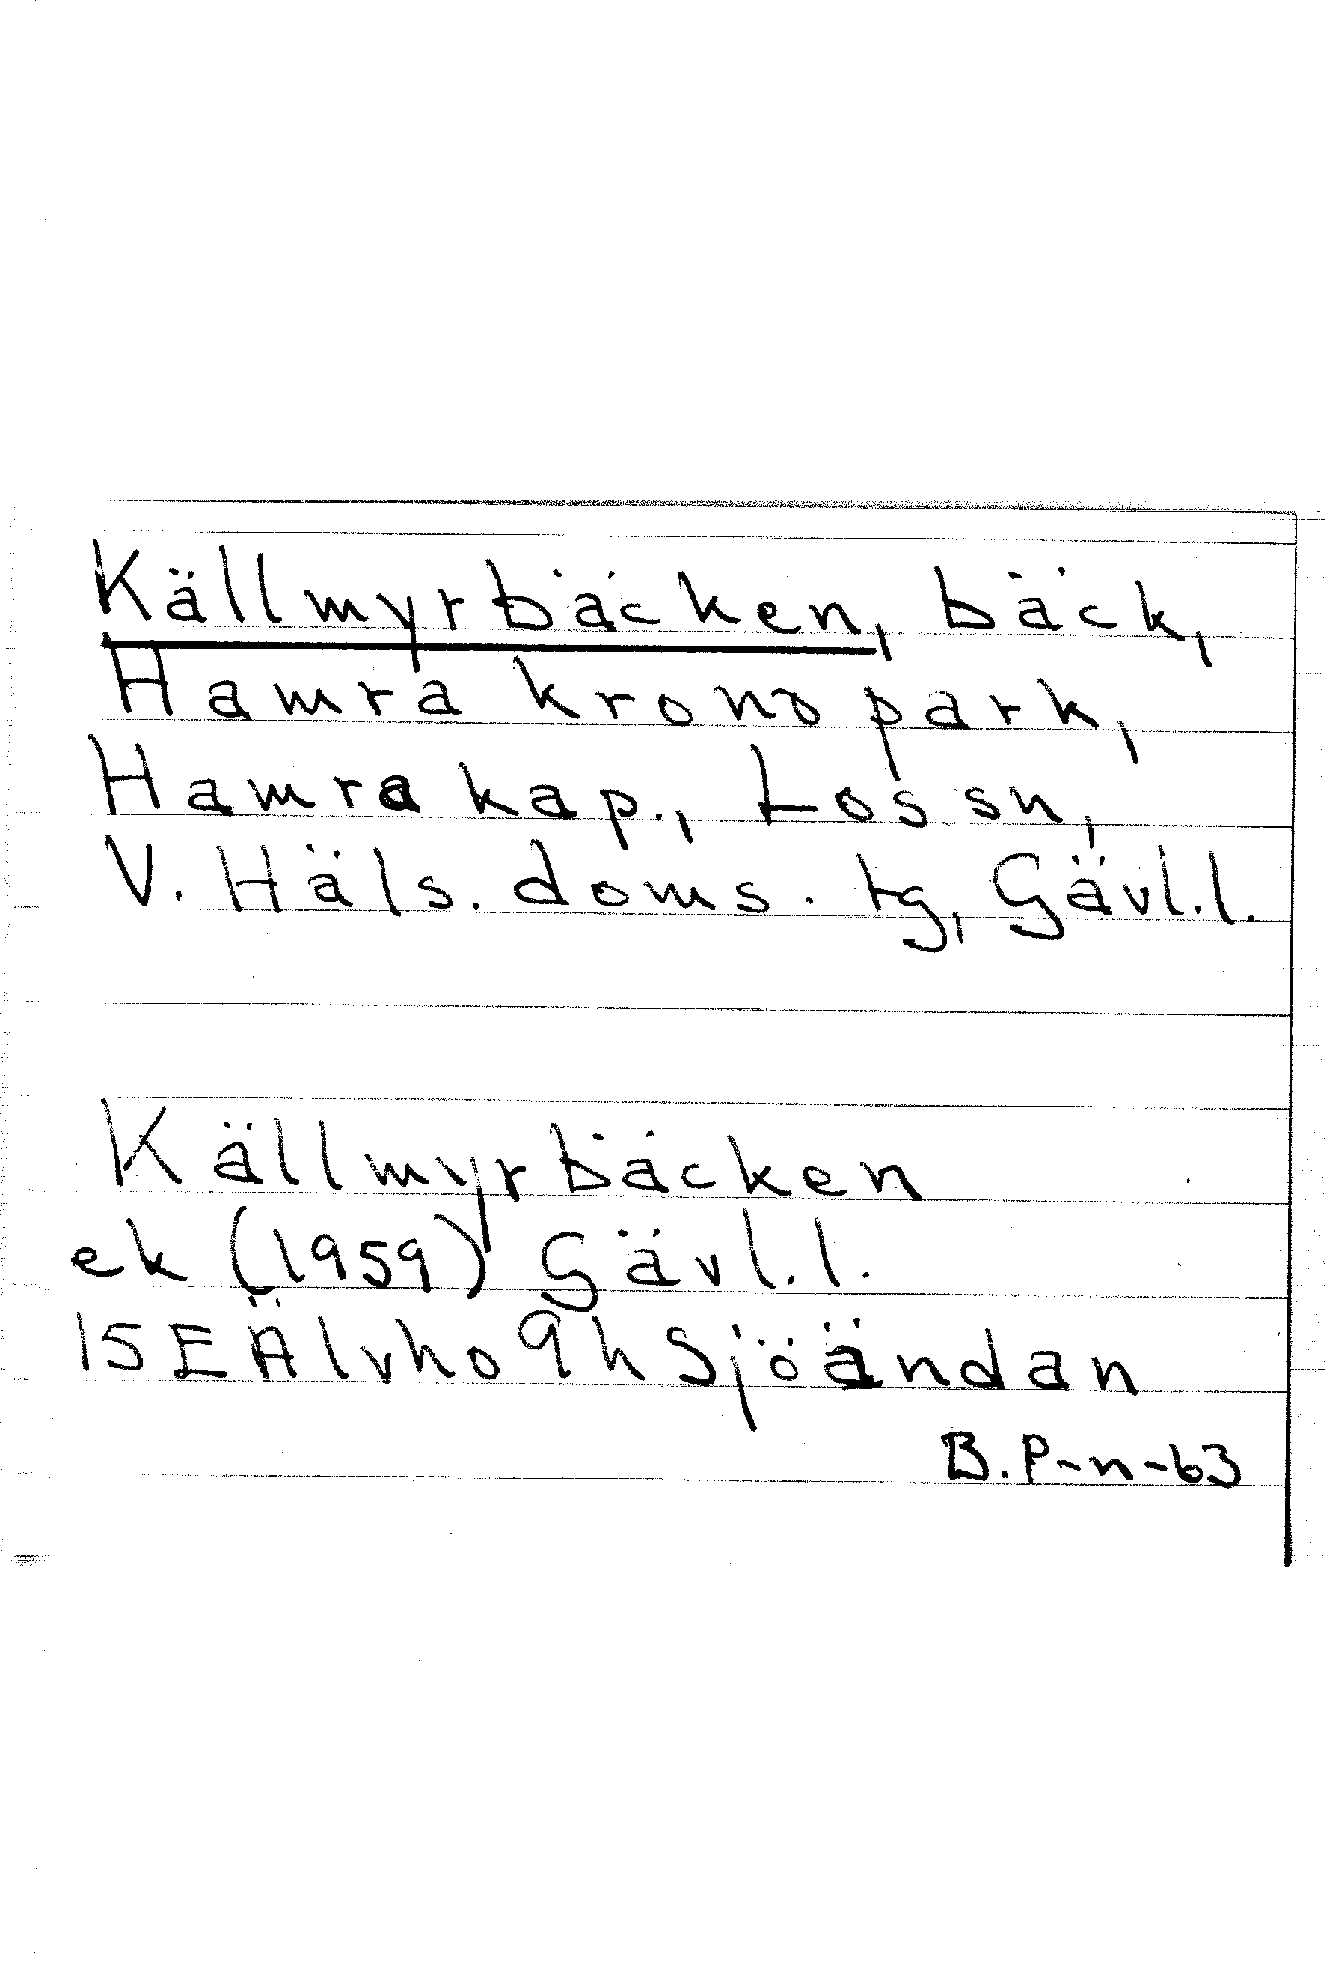 Källmyrbäcken, bäck,
Hamra kronopark,
Hamra kap., Los sn,
V. Häls. doms. tg, Gävl.l.
Källmyrbäcken
ek (1959) Gävl.l.
15EÄlvho9hSjöändan
B.P-n-63